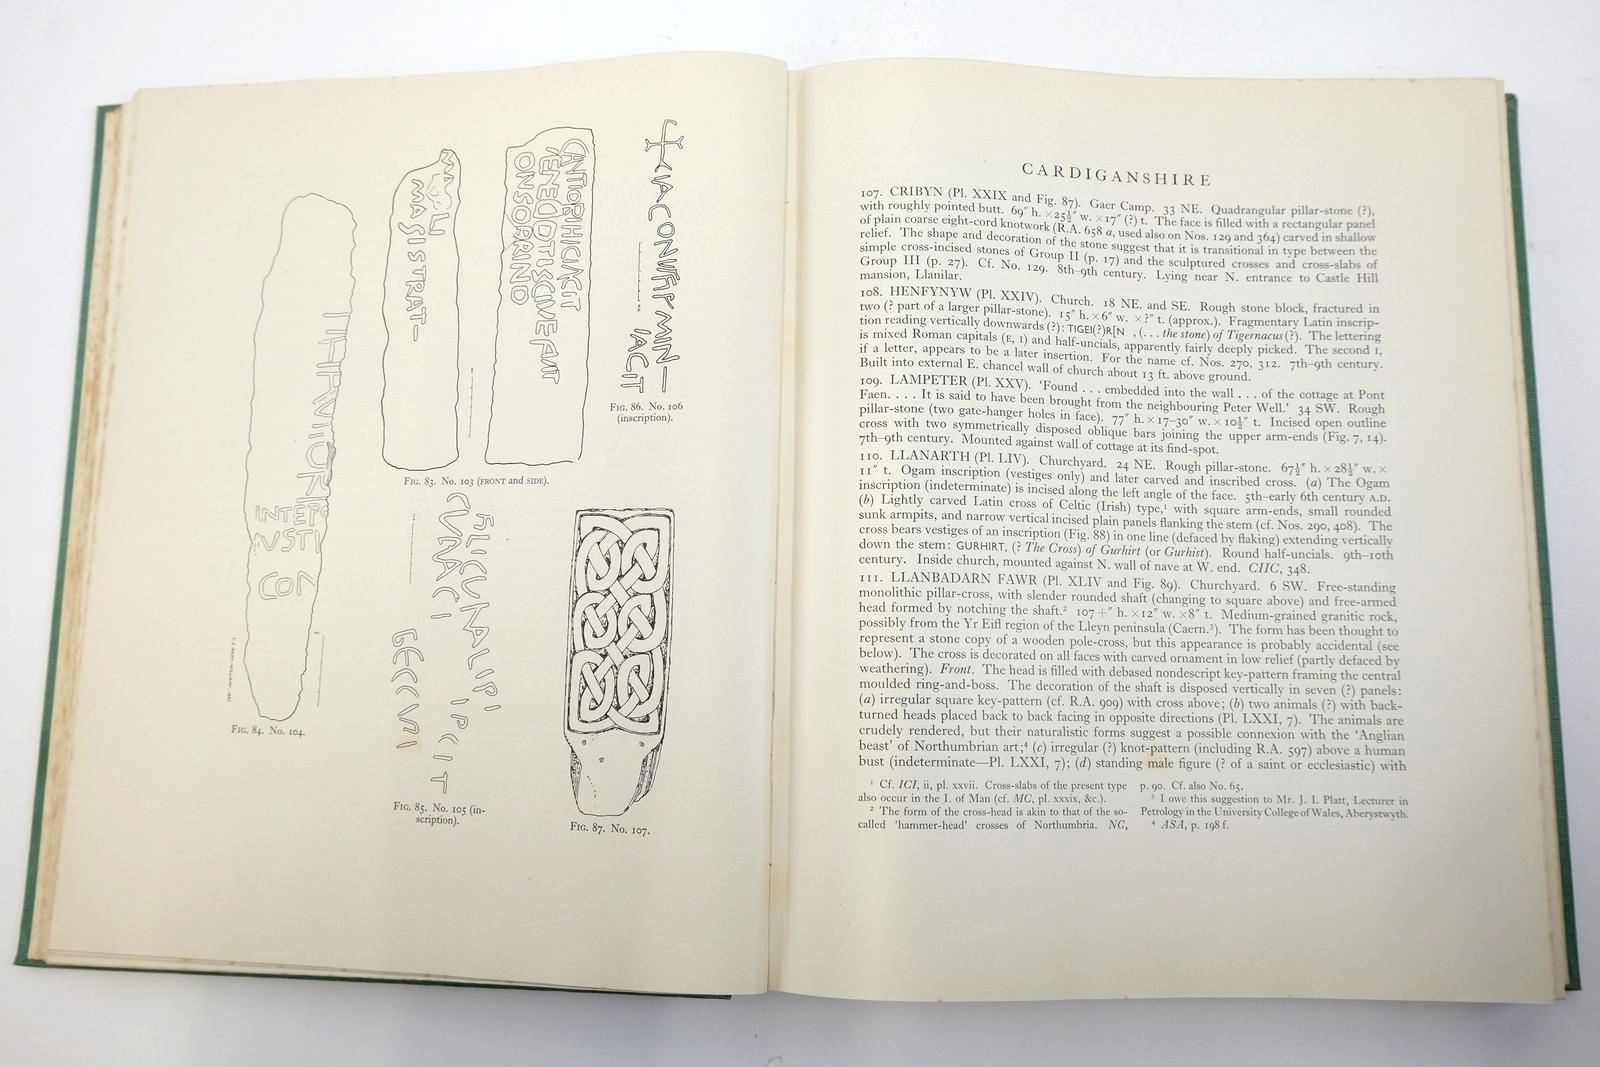 IACONVS
IACIT
FIG. 86. No. 106
(inscription).
CANTIORIHICIACIT
VENEDOTISCIVEFVIT
ONSOBRINO
MA
MAGISTRAT
FIG. 83. No. 103 (FRONT and SIDE).
INTEP
IVSTI
CON
FIG. 84. No. 104.
FIG. 85. No. 105 (in-
scription).
FIG. 87. No. 107.
CARDIGANSHIRE
107. CRIBYN (Pl. XXIX and Fig. 87). Gaer Camp. 33 NE. Quadrangular pillar-stone (?),
with roughly pointed butt. 69″ h. × 25½″ w. × 17″ (?) t. The face is filled with a rectangular panel
of plain coarse eight-cord knotwork (R.A. 658 a, used also on Nos. 129 and 364) carved in shallow
relief. The shape and decoration of the stone suggest that it is transitional in type between the
simple cross-incised stones of Group II (p. 17) and the sculptured crosses and cross-slabs of
Group III (p. 27). Cf. No. 129. 8th–9th century. Lying near N. entrance to Castle Hill
mansion, Llanilar.
108. HENFYNYW (Pl. XXIV). Church. 18 NE. and SE. Rough stone block, fractured in
two (? part of a larger pillar-stone). 15″ h. × 6″ w. × ?″ t. (approx.). Fragmentary Latin inscrip-
tion reading vertically downwards (?): TIGEI(?)R[N , (. . . the stone) of Tigernacus (?). The lettering
is mixed Roman capitals (E, I) and half-uncials, apparently fairly deeply picked. The second I,
if a letter, appears to be a later insertion. For the name cf. Nos. 270, 312. 7th–9th century.
Built into external E. chancel wall of church about 13 ft. above ground.
109. LAMPETER (Pl. XXV). ‘Found . . . embedded into the wall . . . of the cottage at Pont
Faen. . . . It is said to have been brought from the neighbouring Peter Well.’ 34 SW. Rough
pillar-stone (two gate-hanger holes in face). 77″ h. × 17–30″ w. × 10½″ t. Incised open outline
cross with two symmetrically disposed oblique bars joining the upper arm-ends (Fig. 7, 14).
7th–9th century. Mounted against wall of cottage at its find-spot.
110. LLANARTH (Pl. LIV). Churchyard. 24 NE. Rough pillar-stone. 67½″ h. × 28½″ w. ×
11″ t. Ogam inscription (vestiges only) and later carved and inscribed cross. (a) The Ogam
inscription (indeterminate) is incised along the left angle of the face. 5th–early 6th century A.D.
(b) Lightly carved Latin cross of Celtic (Irish) type,¹ with square arm-ends, small rounded
sunk armpits, and narrow vertical incised plain panels flanking the stem (cf. Nos. 290, 408). The
cross bears vestiges of an inscription (Fig. 88) in one line (defaced by flaking) extending vertically
down the stem: GURHIRT, (? The Cross) of Gurhirt (or Gurhist). Round half-uncials. 9th–10th
century. Inside church, mounted against N. wall of nave at W. end. CIIC, 348.
111. LLANBADARN FAWR (Pl. XLIV and Fig. 89). Churchyard. 6 SW. Free-standing
monolithic pillar-cross, with slender rounded shaft (changing to square above) and free-armed
head formed by notching the shaft.² 107+″ h. × 12″ w. × 8″ t. Medium-grained granitic rock,
possibly from the Yr Eifl region of the Lleyn peninsula (Caern.³). The form has been thought to
represent a stone copy of a wooden pole-cross, but this appearance is probably accidental (see
below). The cross is decorated on all faces with carved ornament in low relief (partly defaced by
weathering). Front. The head is filled with debased nondescript key-pattern framing the central
moulded ring-and-boss. The decoration of the shaft is disposed vertically in seven (?) panels:
(a) irregular square key-pattern (cf. R.A. 909) with cross above; (b) two animals (?) with back-
turned heads placed back to back facing in opposite directions (Pl. LXXI, 7). The animals are
crudely rendered, but their naturalistic forms suggest a possible connexion with the ‘Anglian
beast’ of Northumbrian art;⁴ (c) irregular (?) knot-pattern (including R.A. 597) above a human
bust (indeterminate—Pl. LXXI, 7); (d) standing male figure (? of a saint or ecclesiastic) with
¹ Cf. ICI, ii, pl. xxvii. Cross-slabs of the present type
also occur in the I. of Man (cf. MC, pl. xxxix, &c.).
² The form of the cross-head is akin to that of the so-
called ‘hammer-head’ crosses of Northumbria. NC,
p. 90. Cf. also No. 65.
³ I owe this suggestion to Mr. J. I. Platt, Lecturer in
Petrology in the University College of Wales, Aberystwyth.
⁴ ASA, p. 198 f.